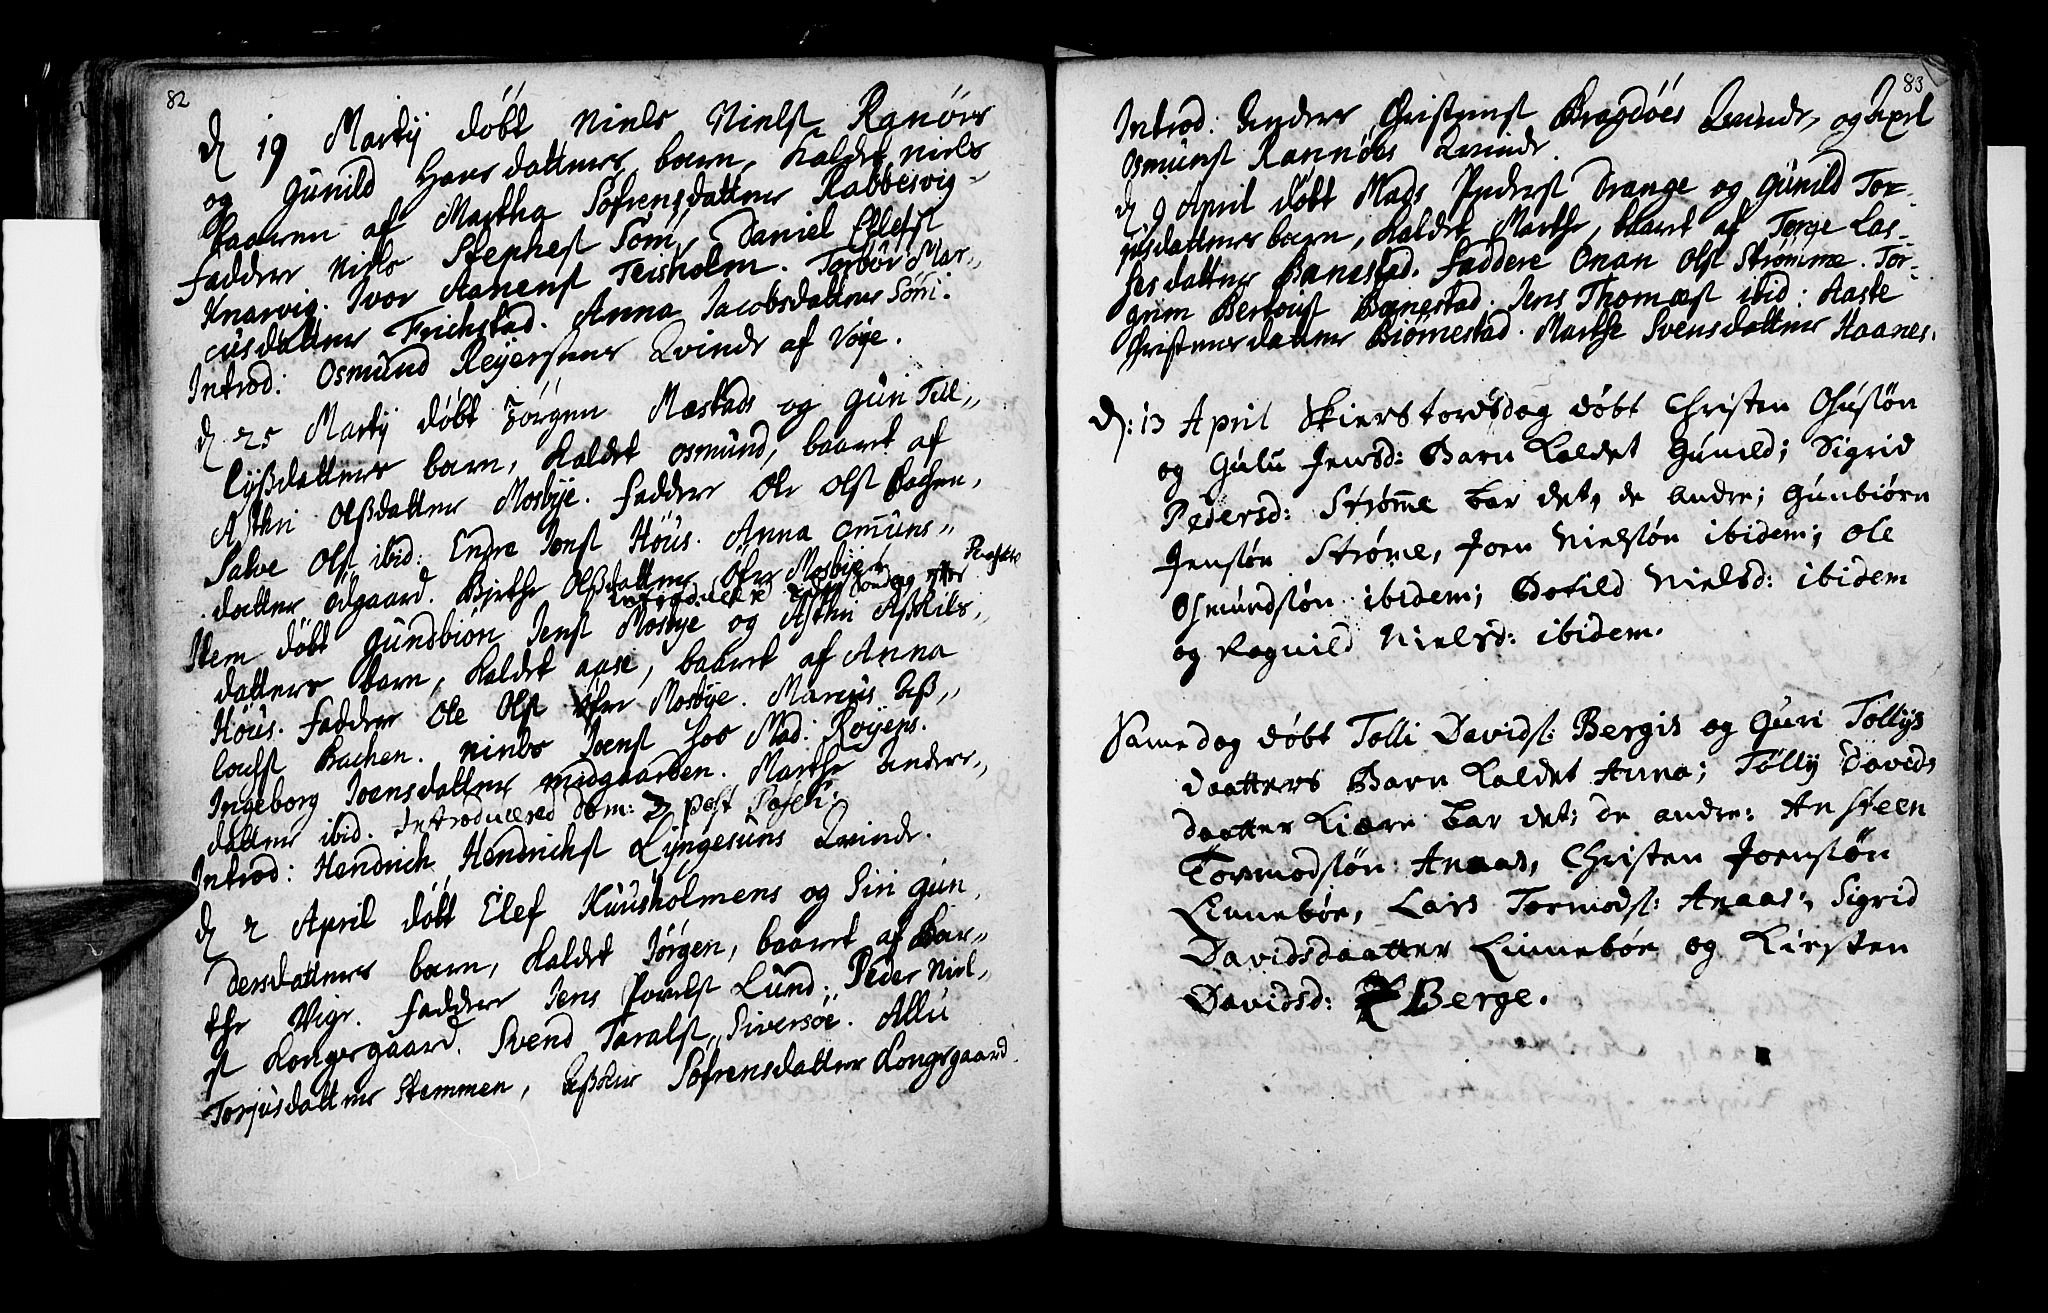 82
d 19 Martij döbt Niels Nielsst Ranöes
og Gunild Hansdatters barn, kaldet Niels
baaren af Martha Sofrensdatter Rabbesvig
Faddere Niels Stephest Söm, Daniel Ellefst
Knarvig. Ivor Aanenst Teisholm. Torbör Mar-
cusdatter Frichstad. Anna Jacobsdatter Söm.
Introd: Osmund Reyersens Qvinde af Vöye.
d 25 Martij döbt Jörgen Mæstads og Gun Tul-
lyssdatters barn, kaldet Osmund, baaret af
Asthri Olssdatter Mosbye. Faddere Ole Olst Bachen,
Salve Olst ibid: Endre Jenst Höus. Anna Omuns-
datter ödgaard. Birthe Olssdatter öfre Mosbye.
introduceret söndag efter Paaske
Item döbt Gundbiön Jenst Mosbye og Asthri Askils-
datters barn, kaldet Aase, baaret af Anna
Höus. Faddere Ole Olst öfre Mosbye. Marcus
loufst Bachen. Niels Joenst hoo Mad: Royens.
Ingeborg Joensdatter midgaarden. Marthe Anders-
datter ibid. Introducered dom: 2 post Pasch:
Introd: Hendrich Hendrichst Lyngesuns Qvinde.
d 2 April döbt Elef Kuusholmens og Siri Gun-
dersdatters barn, kaldet Jörgen, baaret af Bar-
the Vige. Faddere Jens Povelst Lund. Peder Niel-
st Kongsgaard. Svend Taralst, Siversöe. Allu
Torjusdatter Stemmen, Sofrensdatter Kongsgaard.
83
Introd: Anders Christenst Bragdöes Qvinde, og Axel
Osmunst Rannöes Qvinde.
d 9 April döbt Mads Pederst Drange og Gunild Tor-
jusdatters barn, kaldet Marthe, baaret af Torge Las-
ses datter Banestad. Faddere Onan Olst Strömme. Tor-
grim Bertoust Banestad. Jens Thomæst ibid: Aaste
Christensdatter Biörnestad. Marthe Svensdatter Haanes.
D: 13 April Skierstorsdag döbt Christen Osuldsön
og Gulu Jensd: Barn kaldet Gunild; Sigrid
Pedersd: Strömme bar det, de andre; Gunbiörn
Jensön Ströme, Joen Nielsön ibidem; Ole
Osmundsön ibidem; Botild Nielsd: ibidem
og Ragnild Nielsd: ibidem.
Same dag döbt Tolli Davidst: Bergis og Guri Tollys
daatters Barn kaldet Anna; Tölly Davids
daatter Kiære bar det; de andre: Ansteen
Tormodsön Anaas, Christen Joensön
Linnebör, Lars Tormodst: Anaas, Sigrid
Davidsdaatter Linnebör og Kirsten
Davidsd: Berge.